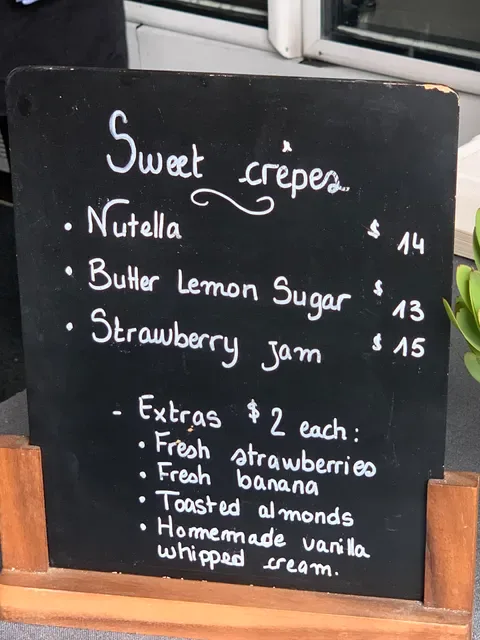 Sweet crêpes
• Nutella $ 14
• Butter Lemon Sugar $ 13
• Strawberry Jam $ 15
- Extras $2 each:
• Fresh strawberries
• Fresh banana
• Toasted almonds
• Homemade vanilla
whipped cream.